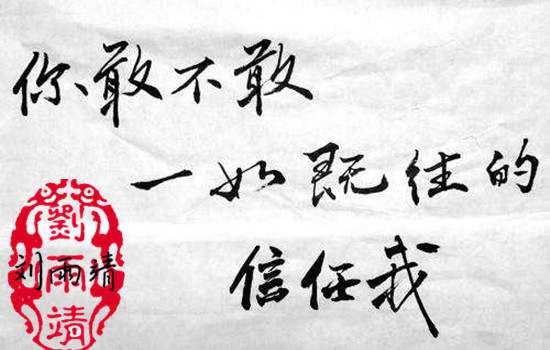 你敢不敢
一如既往的
信任我
劉雨靖
刘雨靖